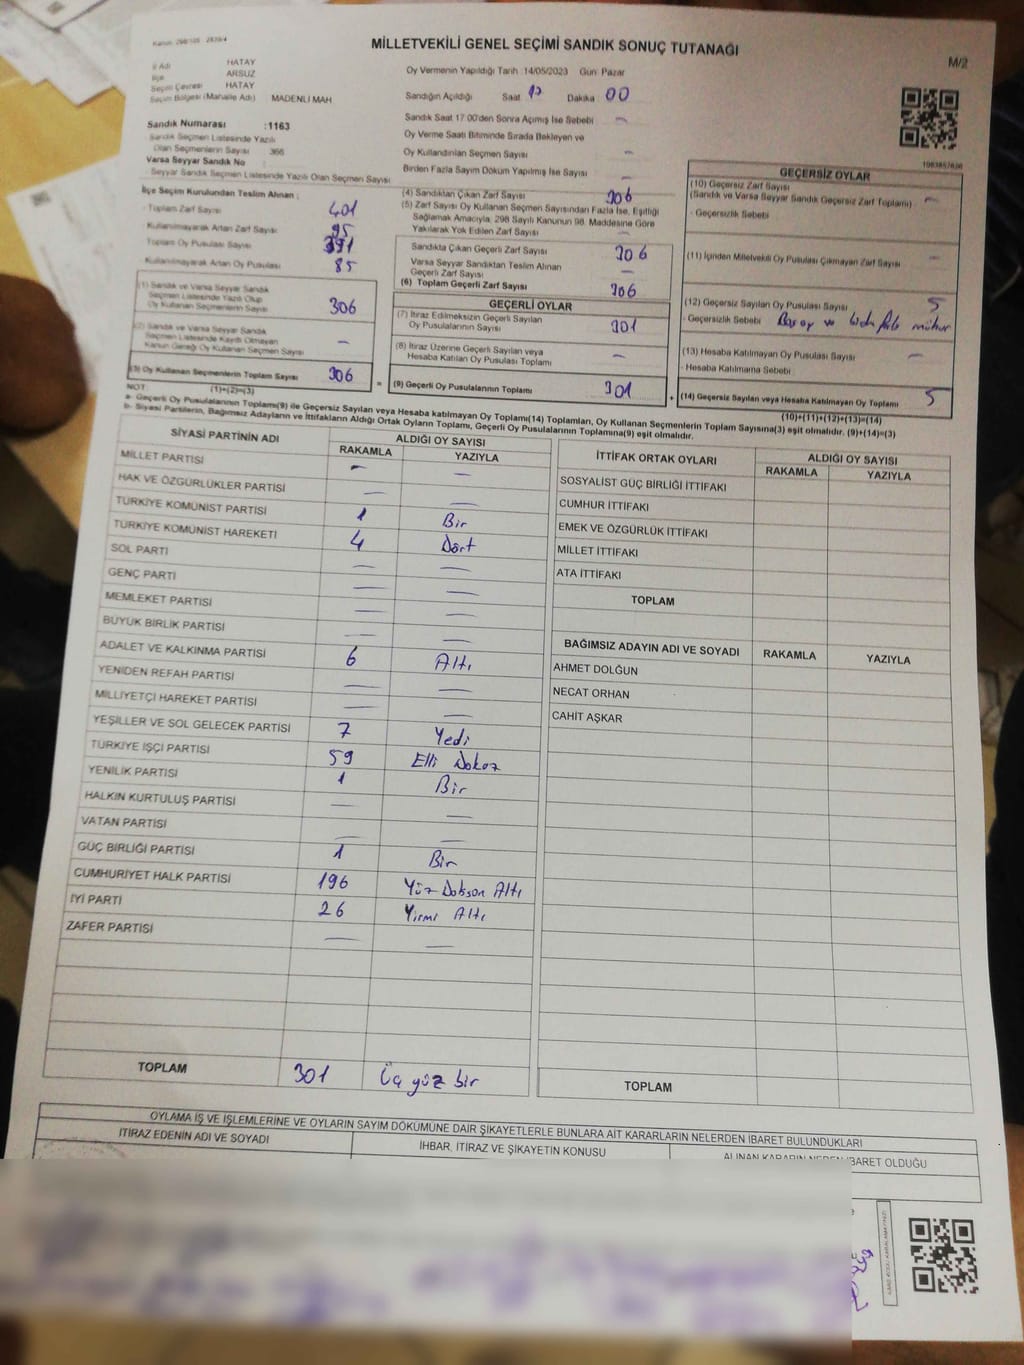 MİLLETVEKİLİ GENEL SEÇİMİ SANDIK SONUÇ TUTANAĞI
M/2
İl Adı HATAY
İlçe ARSUZ
Seçim Çevresi HATAY
Seçim Bölgesi (Mahalle Adı) MADENLİ MAH
Oy Vermenin Yapıldığı Tarih :14/05/2023 Gün: Pazar
Sandığın Açıldığı Saat Dakika 00
Sandık Saat 17:00'den Sonra Açımış İse Sebebi —
Oy Verme Saati Bitiminde Sırada Bekleyen ve
Oy Kullandırılan Seçmen Sayısı —
Birden Fazla Sayım Döküm Yapılmış İse Sayısı —
Sandık Numarası :1163
Sandık Seçmen Listesinde Yazılı
Olan Seçmenlerin Sayısı 366
Varsa Seyyar Sandık No
Seyyar Sandık Seçmen Listesinde Yazılı Olan Seçmen Sayısı
İlçe Seçim Kurulundan Teslim Alınan ;
- Toplam Zarf Sayısı 401
Kullanılmayarak Artan Zarf Sayısı 95
Toplam Oy Pusulası Sayısı 391
Kullanılmayarak Artan Oy Pusulası 85
(1) Sandık ve Varsa Seyyar Sandık
Seçmen Listesinde Yazılı Olup
Oy Kullanan Seçmenlerin Sayısı 306
(2) Sandık ve Varsa Seyyar Sandık
Seçmen Listesinde Kayıtlı Olmayan
Kanun Gereği Oy Kullanan Seçmen Sayısı —
(3) Oy Kullanan Seçmenlerin Toplam Sayısı 306
(1)+(2)=(3)
(4) Sandıktan Çıkan Zarf Sayısı 306
(5) Zarf Sayısı Oy Kullanan Seçmen Sayısından Fazla İse, Eşitliği
Sağlamak Amacıyla, 298 Sayılı Kanunun 98. Maddesine Göre
Yakılarak Yok Edilen Zarf Sayısı —
Sandıkta Çıkan Geçerli Zarf Sayısı 306
Varsa Seyyar Sandıktan Teslim Alınan
Geçerli Zarf Sayısı —
(6) Toplam Geçerli Zarf Sayısı 306
GEÇERLİ OYLAR
(7) İtiraz Edilmeksizin Geçerli Sayılan
Oy Pusulalarının Sayısı 301
(8) İtiraz Üzerine Geçerli Sayılan veya
Hesaba Katılan Oy Pusulası Toplamı —
(9) Geçerli Oy Pusulalarının Toplamı 301
GEÇERSİZ OYLAR
(10) Geçersiz Zarf Sayısı
(Sandık ve Varsa Seyyar Sandık Geçersiz Zarf Toplamı) —
- Geçersizlik Sebebi
(11) İçinden Milletvekili Oy Pusulası Çıkmayan Zarf Sayısı —
(12) Geçersiz Sayılan Oy Pusulası Sayısı 5
- Geçersizlik Sebebi Boş oy ve mühür
(13) Hesaba Katılmayan Oy Pusulası Sayısı —
- Hesaba Katılmama Sebebi
(14) Geçersiz Sayılan veya Hesaba Katılmayan Oy Toplamı 5
(10)+(11)+(12)+(13)=(14)
NOT:
a- Geçerli Oy Pusulalarının Toplamı(9) ile Geçersiz Sayılan veya Hesaba katılmayan Oy Toplamı(14) Toplamları, Oy Kullanan Seçmenlerin Toplam Sayısına(3) eşit olmalıdır. (9)+(14)=(3)
b- Siyasi Partilerin, Bağımsız Adayların ve İttifakların Aldığı Ortak Oyların Toplamı, Geçerli Oy Pusulalarının Toplamına(9) eşit olmalıdır.
SİYASİ PARTİNİN ADI ALDIĞI OY SAYISI
RAKAMLA YAZIYLA
MİLLET PARTİSİ — —
HAK VE ÖZGÜRLÜKLER PARTİSİ — —
TÜRKİYE KOMÜNİST PARTİSİ 1 Bir
TÜRKİYE KOMÜNİST HAREKETİ 4 Dört
SOL PARTİ — —
GENÇ PARTİ — —
MEMLEKET PARTİSİ — —
BÜYÜK BİRLİK PARTİSİ — —
ADALET VE KALKINMA PARTİSİ 6 Altı
YENİDEN REFAH PARTİSİ — —
MİLLİYETÇİ HAREKET PARTİSİ — —
YEŞİLLER VE SOL GELECEK PARTİSİ 7 Yedi
TÜRKİYE İŞÇİ PARTİSİ 59 Elli Dokoz
YENİLİK PARTİSİ 1 Bir
HALKIN KURTULUŞ PARTİSİ — —
VATAN PARTİSİ — —
GÜÇ BİRLİĞİ PARTİSİ 1 Bir
CUMHURİYET HALK PARTİSİ 196 Yüz Doksan Altı
İYİ PARTİ 26 Yirmi Altı
ZAFER PARTİSİ — —
TOPLAM 301 Üç yüz bir
İTTİFAK ORTAK OYLARI ALDIĞI OY SAYISI
RAKAMLA YAZIYLA
SOSYALİST GÜÇ BİRLİĞİ İTTİFAKI
CUMHUR İTTİFAKI
EMEK VE ÖZGÜRLÜK İTTİFAKI
MİLLET İTTİFAKI
ATA İTTİFAKI
TOPLAM
BAĞIMSIZ ADAYIN ADI VE SOYADI RAKAMLA YAZIYLA
AHMET DOLĞUN
NECAT ORHAN
CAHİT AŞKAR
TOPLAM
OYLAMA İŞ VE İŞLEMLERİNE VE OYLARIN SAYIM DÖKÜMÜNE DAİR ŞİKAYETLERLE BUNLARA AİT KARARLARIN NELERDEN İBARET BULUNDUKLARI
İTİRAZ EDENİN ADI VE SOYADI İHBAR, İTİRAZ VE ŞİKAYETİN KONUSU ALINAN KARARIN NEDEN İBARET OLDUĞU